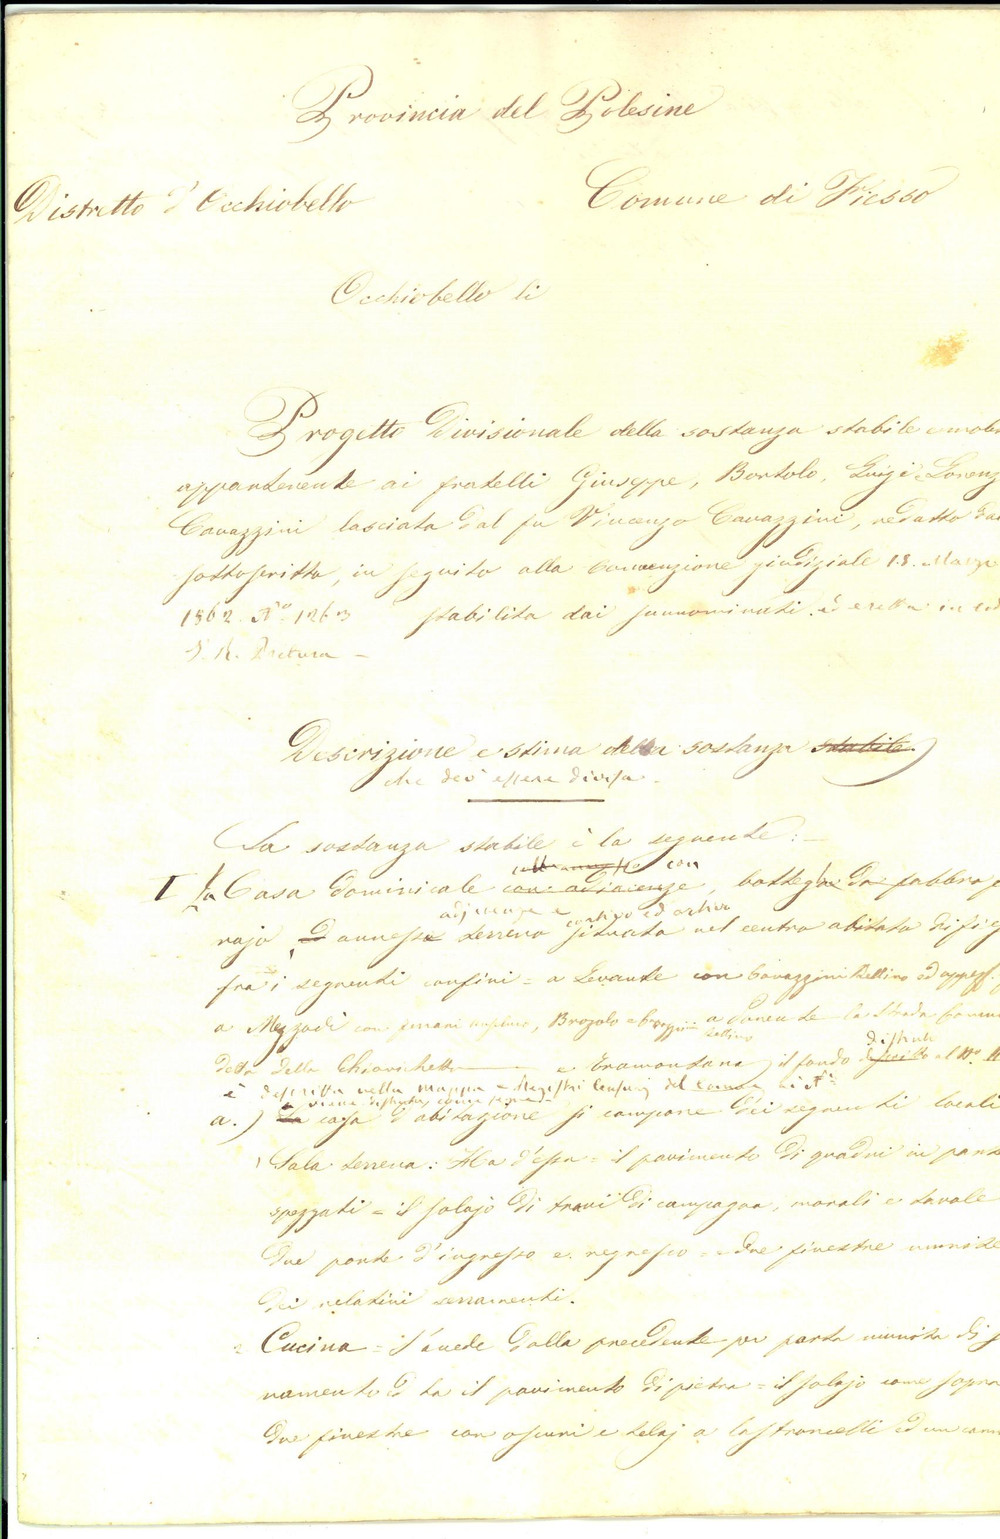 Provincia del Polesine
Distretto d'Occhiobello
Comune di Fiesso
Occhiobello li
Progetto Divisionale della sostanza stabile e mobi
appartenente ai fratelli Giuseppe, Bortolo, Luigi e Lorenz
Cavazzini lasciata dal fu Vincenzo Cavazzini, redatto da
sottoscritto, in seguito alla Convenzione giudiziale 18. Marzo
1862. N.o 1263 stabilita dai sunnominati ed eretta in
I. R. Pretura —
Descrizione e stima della sostanza stabile
che dev'essere divisa.
La sostanza stabile è la seguente: —
con
I La Casa dominicale con adiacenze, botteghe da fabbro f
adjacenze e cortivo ed ortivo
rajo D annesso terreno situata nel centro abitato di
fra i seguenti confini = a Levante con Cavazzini Bellino ed
a Mezzodì con Brogolo e a Ponente la Strada Comun
Bellino
detta della Chiavichetta e Tramontana il fondo al N.o
è descritta nella mappa e Registri Censuarj del
viene distinta come segue
a.) La casa d'abitazione si compone dei segnenti locali
1 Sala terrena: Ha d'essa = il pavimento di quadri in parte
spezzati = il solajo di travi di campagna, morali e tavole
due porte d'ingresso e regresso = due finestre munite
dei relativi serramenti.
2 Cucina = s'accede dalla precedente per porta munita di s
ramento D ha il pavimento di pietra = il solajo come sopra
due finestre con oscuri e telaj a lastroncelli ed un cam